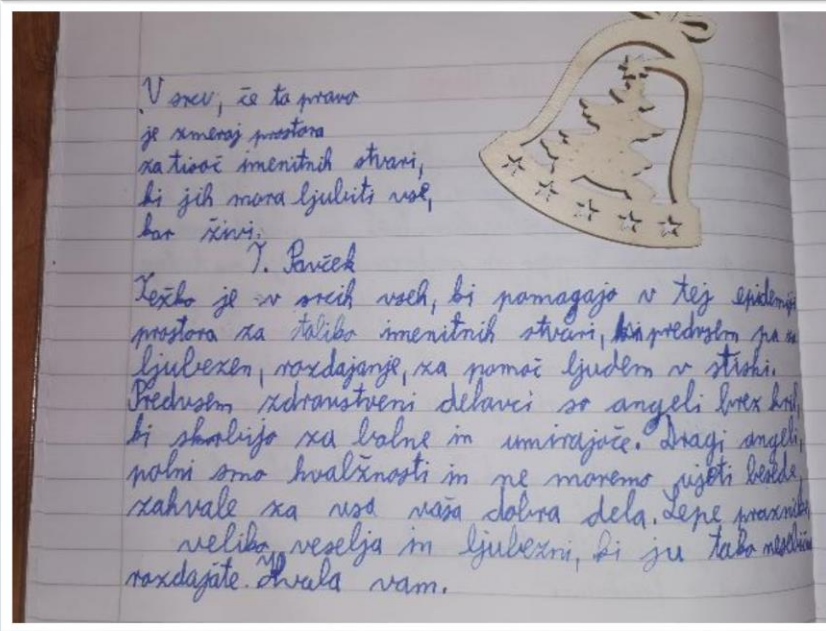 V srcu, če ta pravo
je zmeraj prostora
za tisoč imenitnih stvari,
ki jih mora ljubiti vse,
kar živi.
T. Pavček
Težko je v srcih vseh, ki pomagajo v tej epidemiji
prostora za toliko imenitnih stvari, predvsem pa za
ljubezen, razdajanje, za pomoč ljudem v stiski.
Predvsem zdravstveni delavci so angeli brez kril,
ki skrbijo za bolne in umirajoče. Dragi angeli,
polni smo hvaležnosti in ne moremo ujeti besede
zahvale za vsa vaša dobra dela. Lepe praznike,
veliko veselja in ljubezni, ki ju tako nesebično
razdajate. Hvala vam.